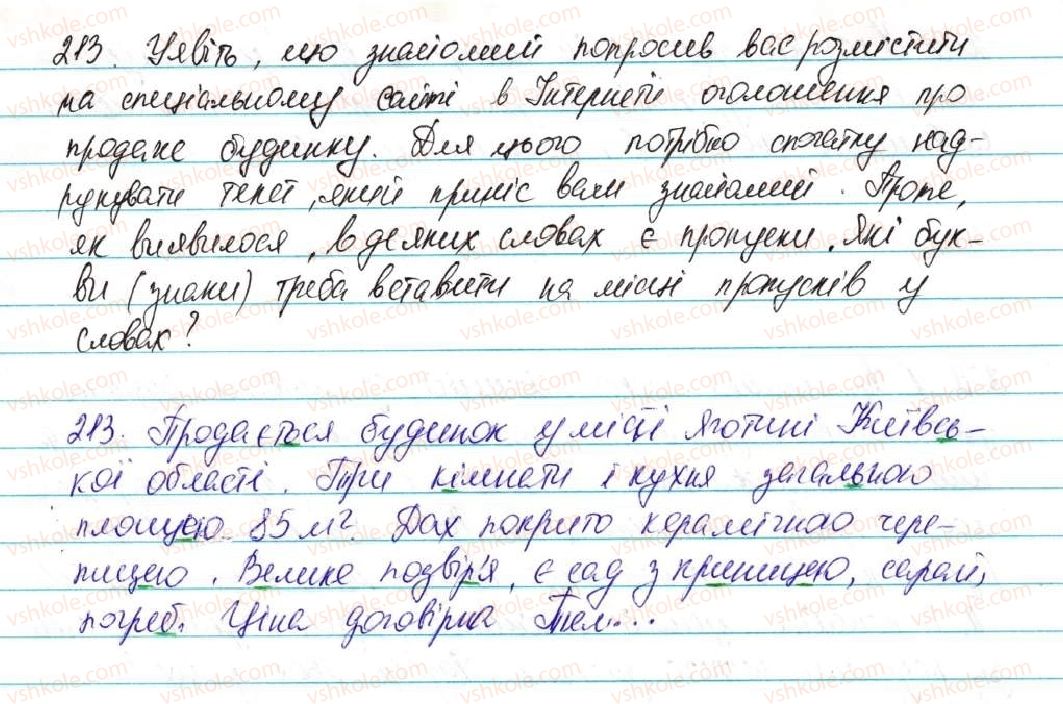 213. Уявіть, що знайомий попросив вас розмістити
на спеціальному сайті в Інтернеті оголошення про
продаж будинку. Для цього потрібно спочатку над-
рукувати текст, який приніс вам знайомий. Проте,
як виявилося, в деяких словах є пропуски. Які бук-
ви (знаки) треба вставити на місці пропусків у
словах?
213. Продається будинок у місті Яготині Київсь-
кої області. Три кімнати і кухня загальною
площею 85 м². Дах покрито керамічною чере-
пицею. Велике подвір'я, є сад з криницею, сарай,
погреб. Ціна договірна Тел....